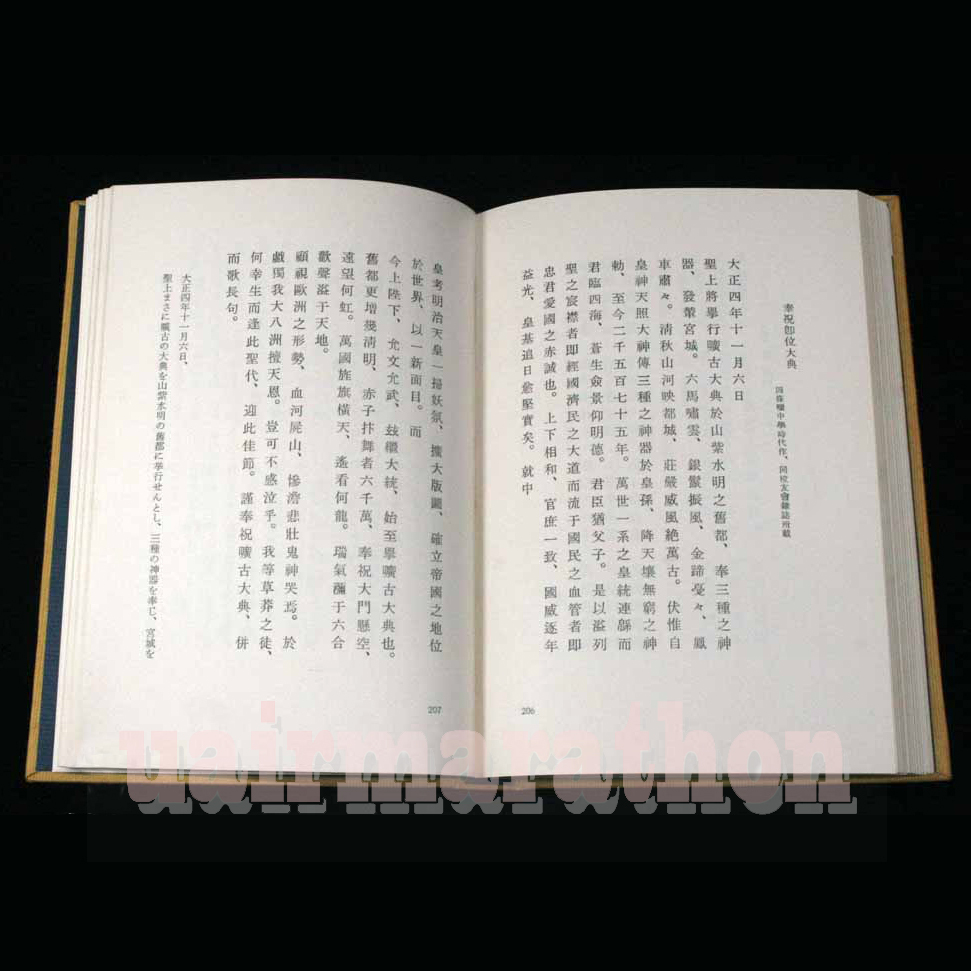 奉祝卽位大典
四條畷中學時代作、同校友會雜誌所載
大正四年十一月六日
聖上將擧行曠古大典於山紫水明之舊都、奉三種之神
器、發輦宮城。六馬嘯雲、銀鬣振風、金蹄戞々、鳳
車肅々。淸秋山河映都城、莊嚴威風絶萬古。伏惟自
皇神天照大神傳三種之神器於皇孫、降天壤無窮之神
勅、至今二千五百七十五年。萬世一系之皇統連緜而
君臨四海、蒼生僉景仰明德。君臣猶父子。是以溢列
聖之宸襟者即經國濟民之大道而流于國民之血管者即
忠君愛國之赤誠也。上下相和、官庶一致、國威逐年
益光、皇基追日愈堅實矣。就中
206
皇考明治天皇一掃妖氛、擴大版圖、確立帝國之地位
於世界、以一新面目。而
今上陛下、允文允武、玆繼大統、始至擧曠古大典也。
舊都更增幾淸明、赤子抃舞者六千萬、奉祝大門懸空、
遠望何虹。萬國旌旗橫天、遙看何龍。瑞氣瀰于六合
歡聲溢于天地。
顧視歐洲之形勢、血河屍山、慘澹悲壯鬼神哭焉。於
戲獨我大八洲擅天恩。豈可不感泣乎。我等草莽之徒、
何幸生而逢此聖代、迎此佳節。謹奉祝曠古大典、併
而歌長句。
大正四年十一月六日、
聖上まさに曠古の大典を山紫水明の舊都に擧行せんとし、三種の神器を奉じ、宮城を
207
uairmarathon